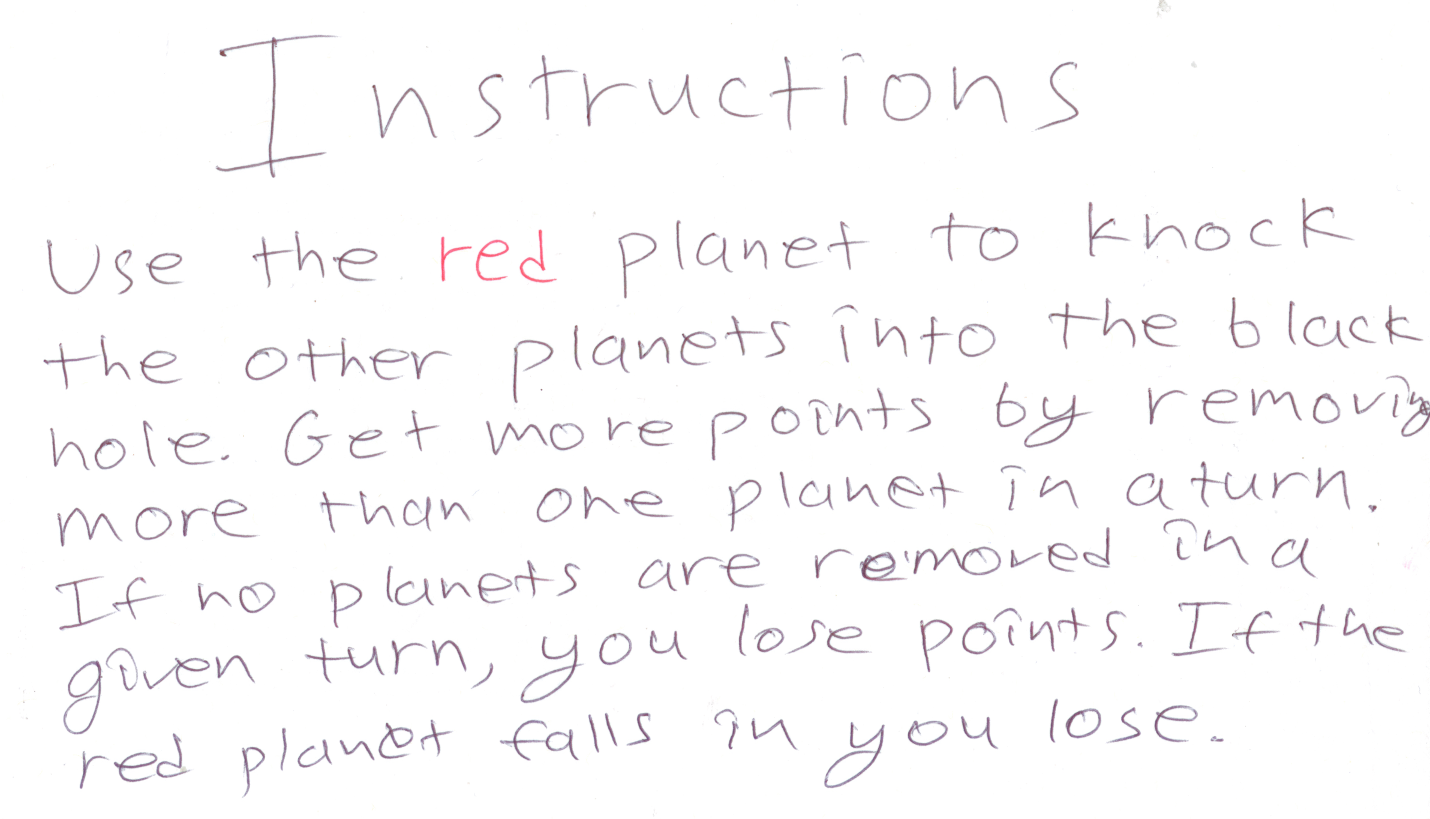 Instructions
Use the red planet to knock
the other planets into the black
hole. Get more points by removing
more than one planet in a turn.
If no planets are removed in a
given turn, you lose points. If the
red planet falls in you lose.